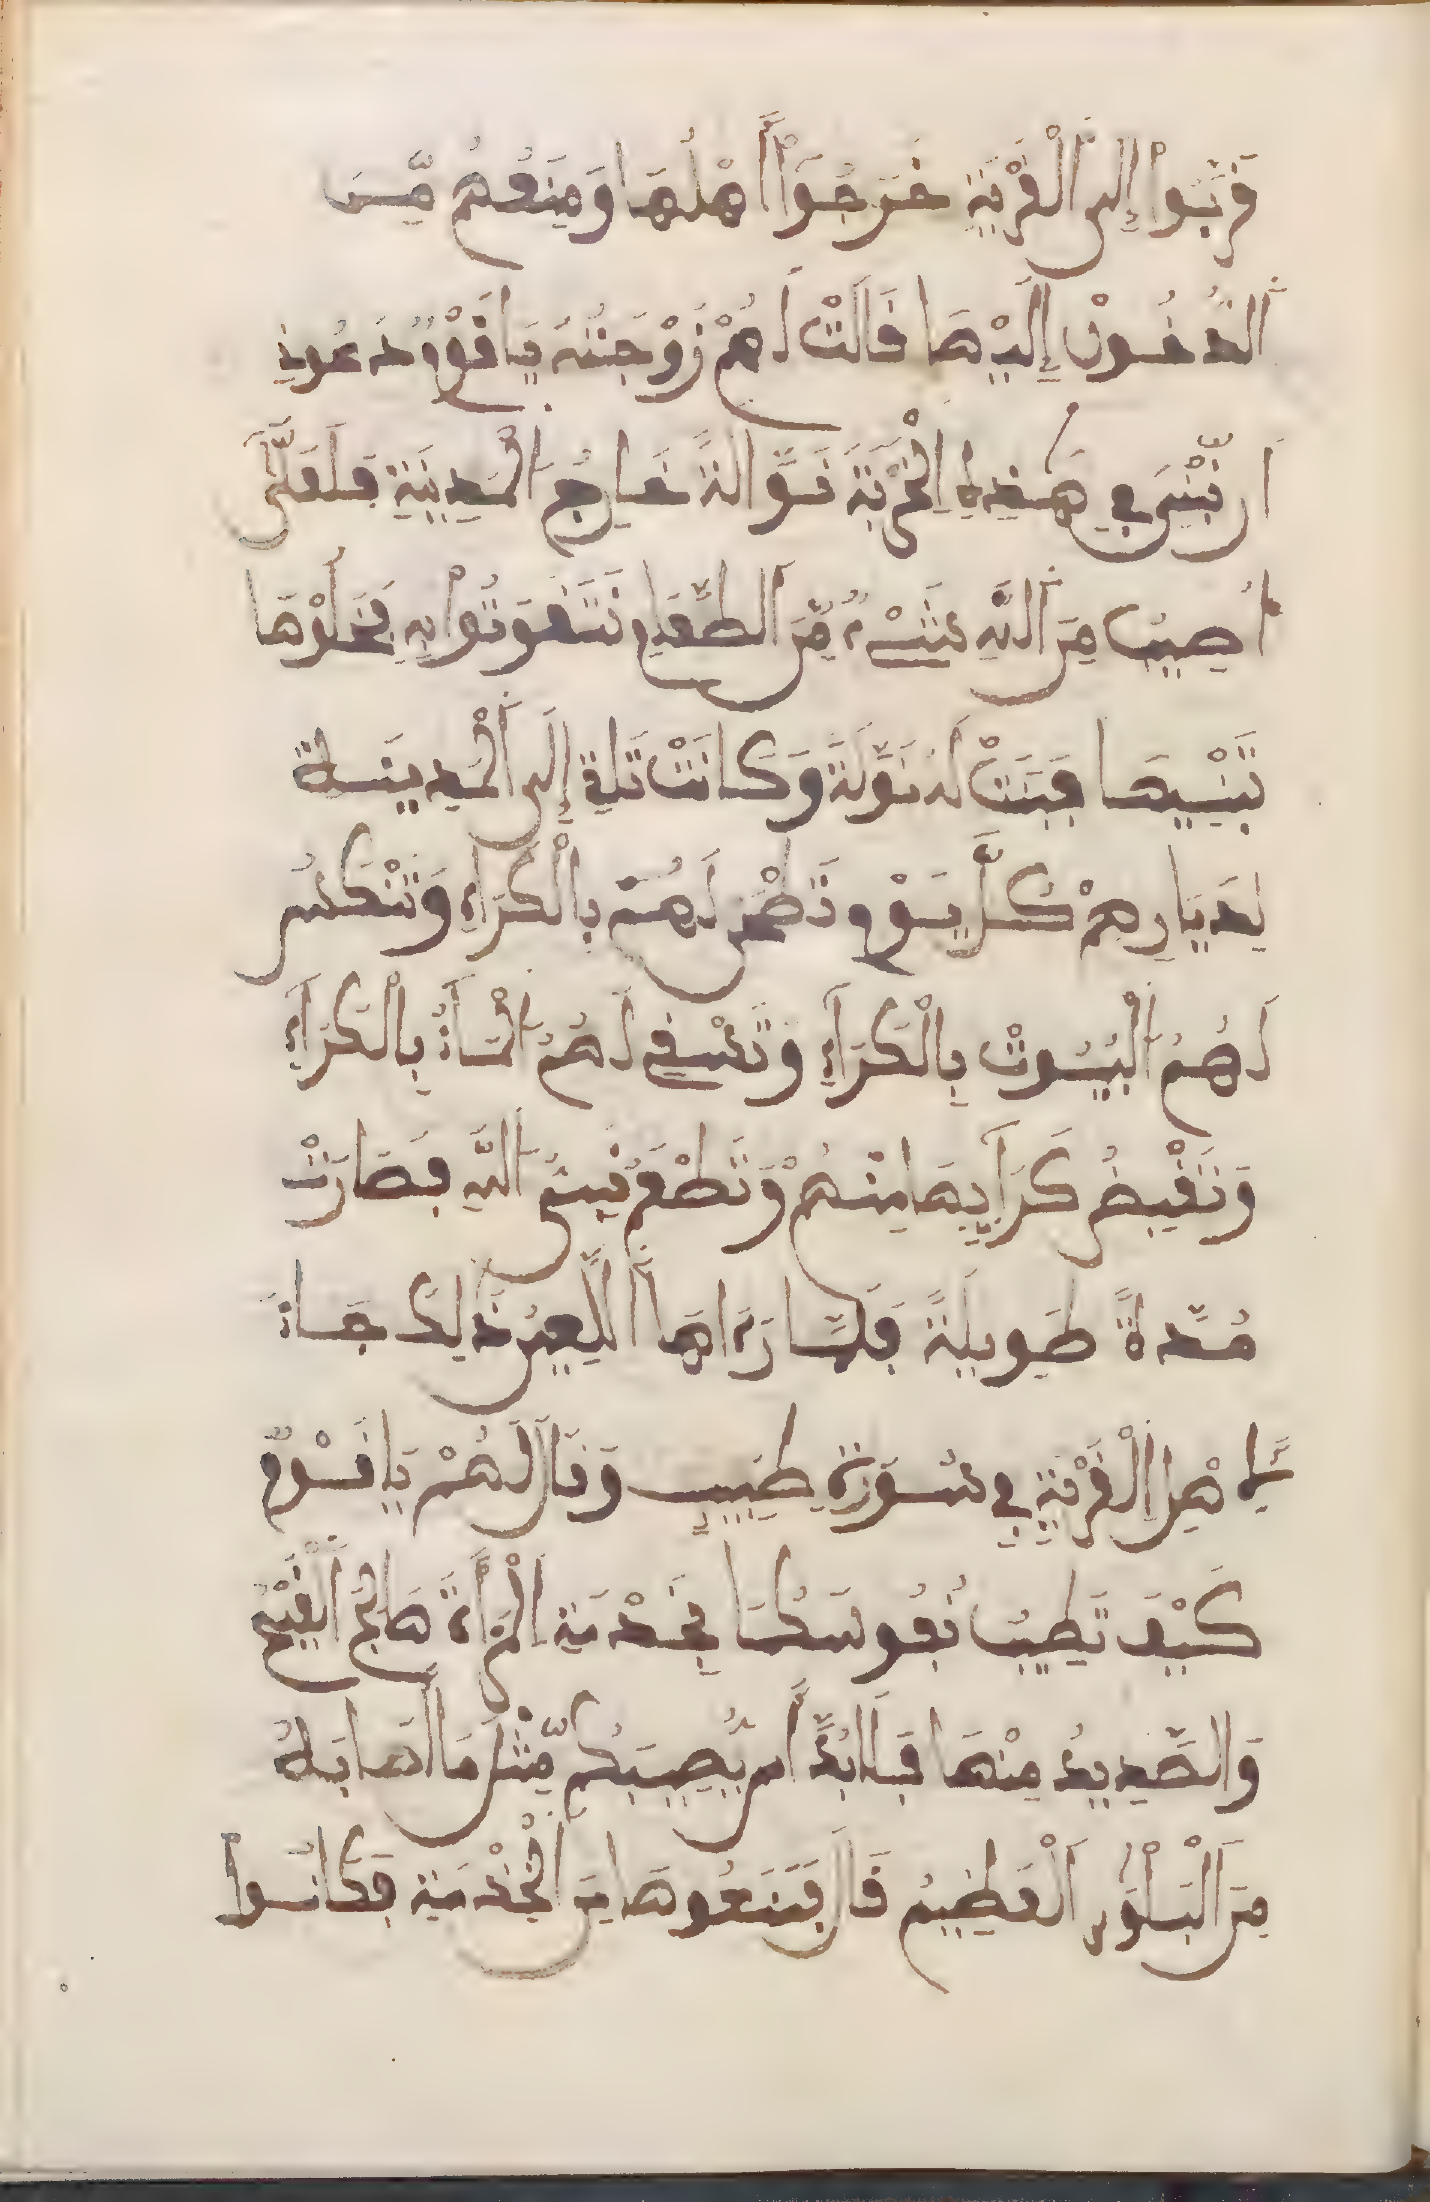 قَرَبُواْ إِلَى ٱلْقَرْيَةِ خَرَجُوٓاْ أَهْلُهَا وَمَنَعُهُمْ مِّنَ
ٱلدُّخُولْ إِلَيْهَا قَالَتْ لَهُمْ زَوْجَتُهُ يَا قَوْمُ دَعُونِ
أَن نَّبْنِيَ فِي هَذِهِ ٱلْخَرْبَةَ نَوَّالَةً خَارِجَ ٱلْمَدِينَةِ فَلَعَلَّنِي
أُصِيبُ مِنَ ٱللَّهِ شَيْءٌ مِّنَ ٱلطَّعَامِ نَتَقَوَتُواْ بِهِ فَخَلَّوْهَا
تَبْنِيهَا فَبَنَتْ لَهُ نَوَّلَةً وَكَانَتْ تَاتِي إِلَى ٱلْمَدِينَة
لِدِيَارِهِمْ كُلَّ يَوْمٍ تَطْحَنُ لَهُمْ بِالْكَرَاءِ وَتَنْكَسُ
لَهُمُ ٱلْبُيُوتْ بِالْكَرَاءِ وَتَسْقِي لَهُمُ ٱلْمَاءَ بِالْكَرَاءِ
وَتَقْبِضُ كَرَايِهَا مِنْهُمْ وَتَطْعَمُ نَبِيَّ ٱللَّهِ فَصَارَتْ
مُدَّةً طَوِيلَةً فَلَمَّا رَءَاهَا ٱللَّعِينُ ذَلِكَ جَاءَ
لِأَهْلِ ٱلْقَرْيَةِ فِي سُورَةِ طَبِيبٍ وَقَالَ لَهُمْ يَا قَوْمُ
كَيْفَ تَطِيبُ نُفُوسَكُمْ بِخَدْمَةِ ٱلْمَرْأَةِ هَائِجْ ٱلْقَيْحُ
وَالصَّدِيدُ مِنْهَا فَلَابُدَّ أَن يُّصِيبَكُم مِّثْلَ مَا أَصَابَهُ
مِنَ ٱلْبَلْوَى ٱلْعَظِيمْ قَالَ فَمَنَعُوهَا مِنَ ٱلْخِدْمَةِ فَكَانُوا